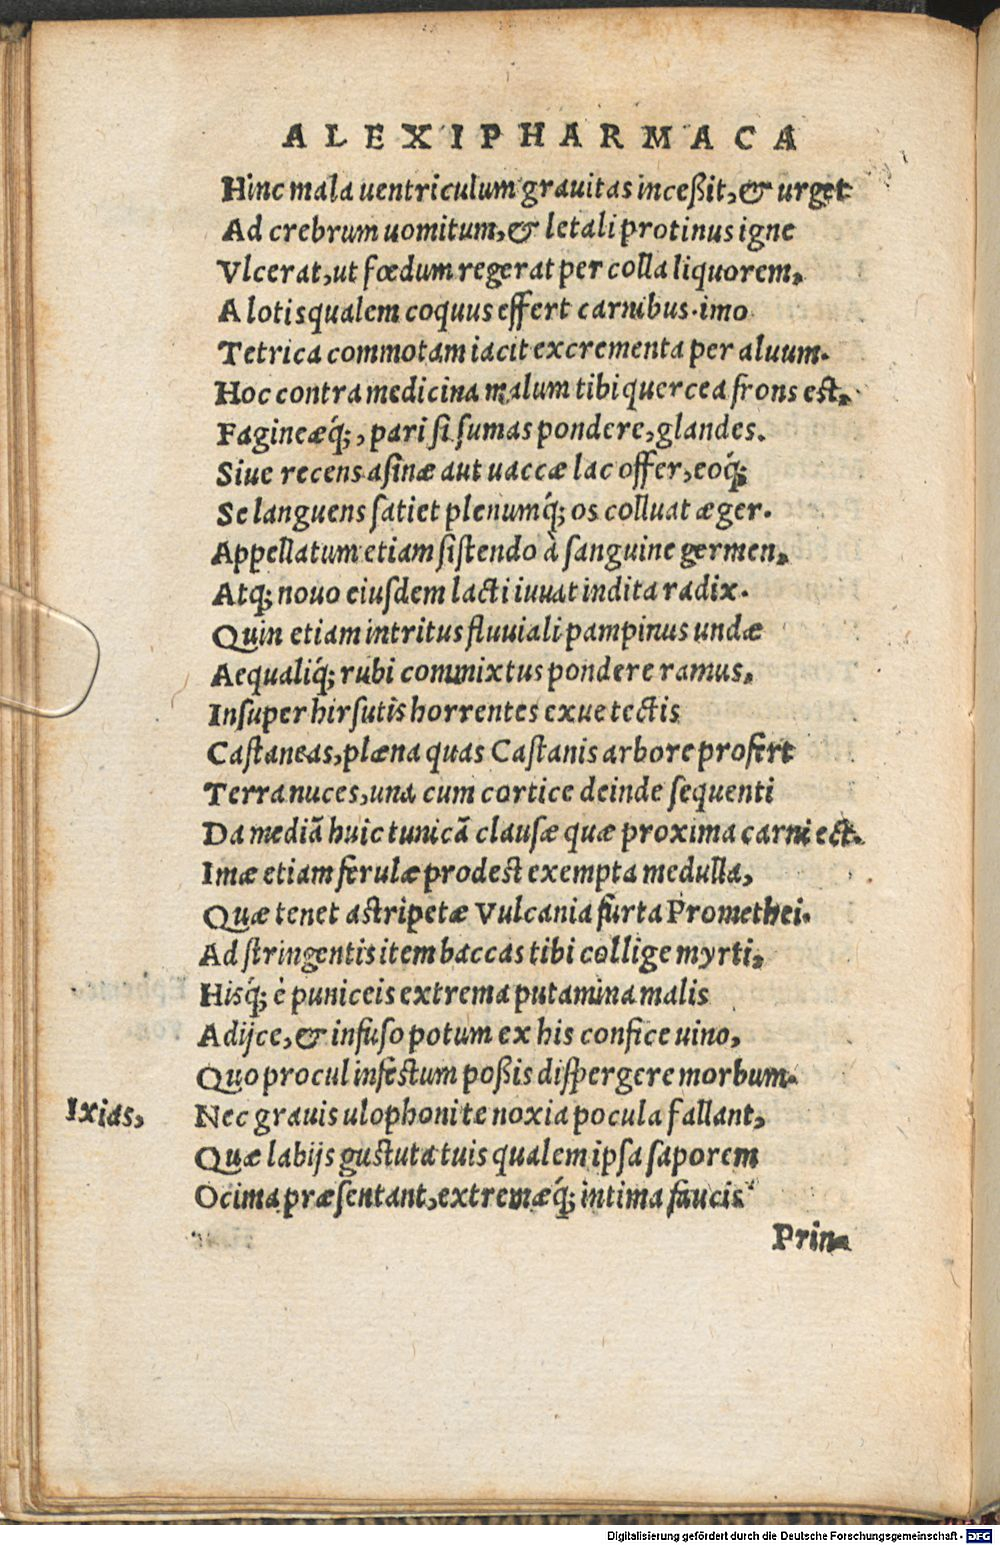 ALEXIPHARMACA
Hinc mala uentriculum grauitas inceßit, & urget
Ad crebrum uomitum, & letali protinus igne
Vlcerat, ut fœdum regerat per colla liquorem,
A lotis qualem coquus effert carnibus. imo
Tetrica commotam iacit excrementa per aluum.
Hoc contra medicina malum tibi quercea frons est,
Fagineæq́;, pari si sumas pondere, glandes.
Siue recens asinæ aut uaccæ lac offer, eoq́;
Se languens satiet plenumq́; os colluat æger.
Appellatum etiam sistendo à sanguine germen,
Atq; nouo eiusdem lacti iuuat indita radix.
Quin etiam intritus fluuiali pampinus undæ
Aequaliq́; rubi commixtus pondere ramus,
Insuper hirsutis horrentes exue tectis
Castaneas, plæna quas Castanis arbore profert
Terra nuces, una cum cortice deinde sequenti
Da mediã huic tunicã clausæ quæ proxima carni ect.
Imæ etiam ferulæ prodest exempta medulla,
Quæ tenet astripetæ Vulcania furta Promethei.
Adstringentis item baccas tibi collige myrti,
Hisq́; è puniceis extrema putamina malis
Adijce, & infuso potum ex his confice uino,
Quo procul infestum poßis dispergere morbum.
Ixias, Nec grauis ulophoni te noxia pocula fallant,
Quæ labijs gustuta tuis qualem ipsa saporem
Ocima præsentant, extremæq́; intima faucis
Prin-
Digitalisierung gefördert durch die Deutsche Forschungsgemeinschaft - DFG